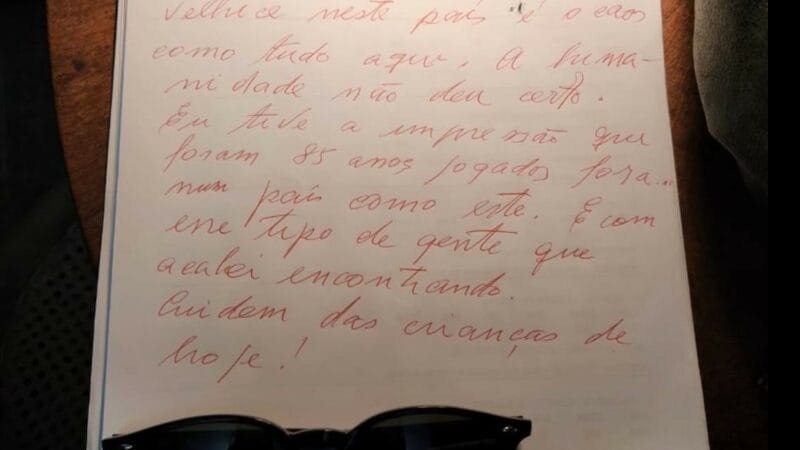 velhice neste país é o caos
como tudo aqui. A huma-
nidade não deu certo.
Eu tive a impressão que
foram 85 anos jogados fora...
num país como este. E com
esse tipo de gente que
acabei encontrando.
Cuidem das crianças de
hoje!